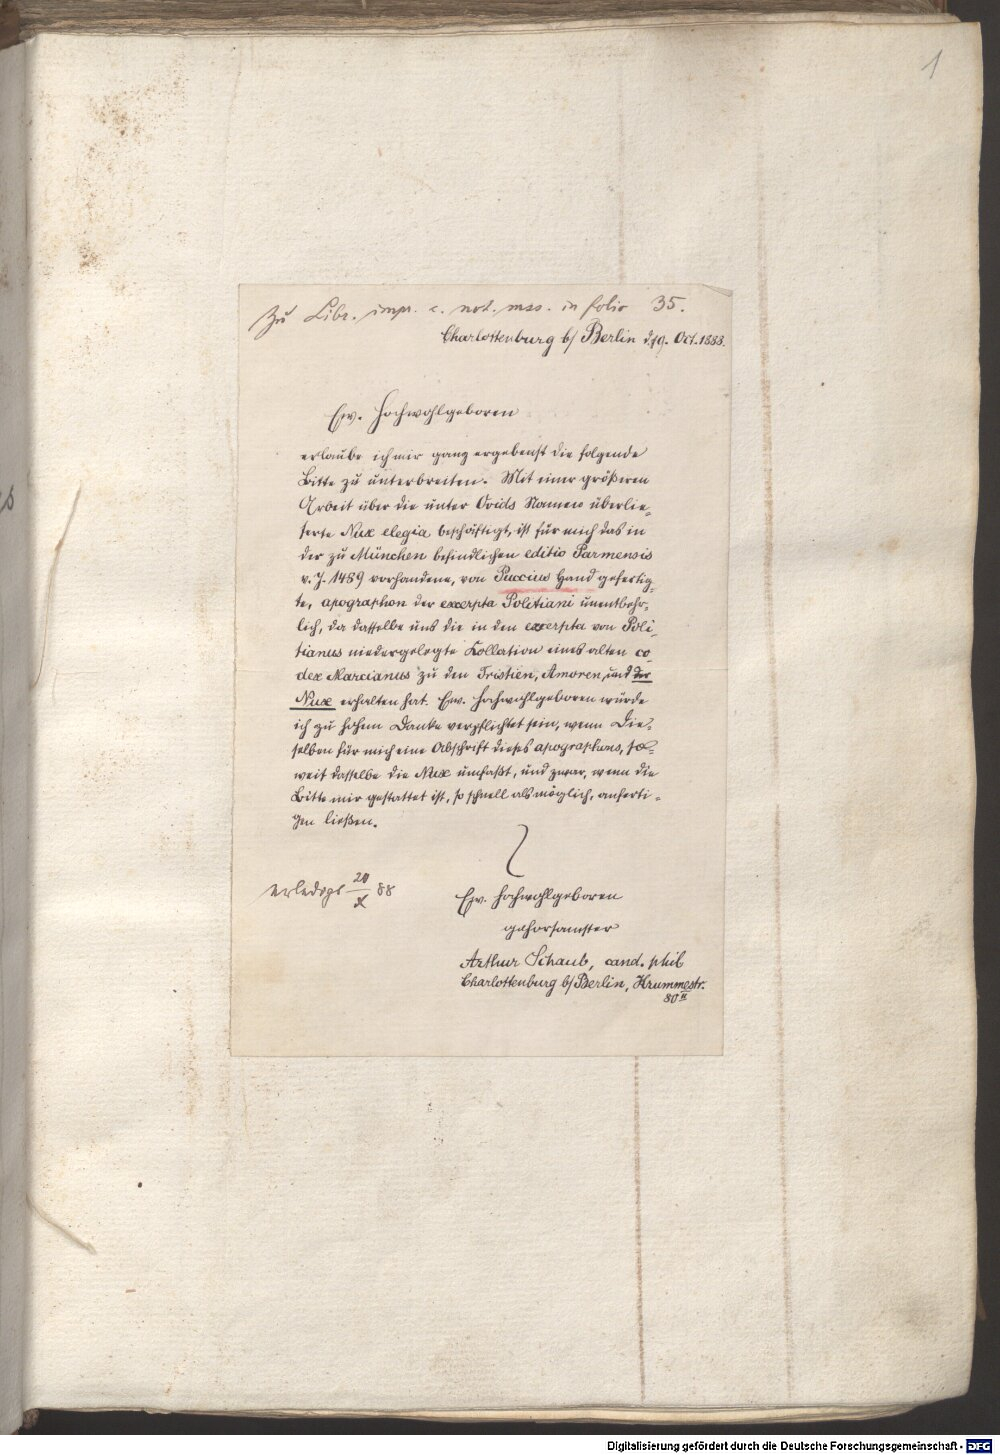 1
Zu Libr. impr. c. not. mss. in folio 35.
Charlottenburg b/ Berlin d. 19. Oct. 1888.
Ew. Hochwohlgeboren
erlaube ich mir ganz ergebenst die folgende
Bitte zu unterbreiten. Mit einer größeren
Arbeit über die unter Ovids Namen überlie-
ferte Nux elegia beschäftigt, ist für mich das in
der zu München befindlichen editio Parmensis
v. J. 1489 vorhandene, von Puccius Hand gefertig-
te, apographon der excerpta Politiani unentbehr-
lich, da dasselbe uns die in den excerpta von Poli-
tianus niedergelegte Kollation eines alten co-
dex Marcianus zu den Tristien, Amoren, und der
Nux erhalten hat. Ew. Hochwohlgeboren würde
ich zu hohem Danke verpflichtet sein, wenn Die-
selben für mich eine Abschrift dieses apographons, so-
weit dasselbe die Nux umfaßt, und zwar, wenn die
Bitte mir gestattet ist, so schnell als möglich, anferti-
gen ließen.
erledigt 20/X 88
Ew. Hochwohlgeboren
gehorsamster
Arthur Schaub, cand. phil
Charlottenburg b/ Berlin, Krummestr.
80 II
Digitalisierung gefördert durch die Deutsche Forschungsgemeinschaft - DFG